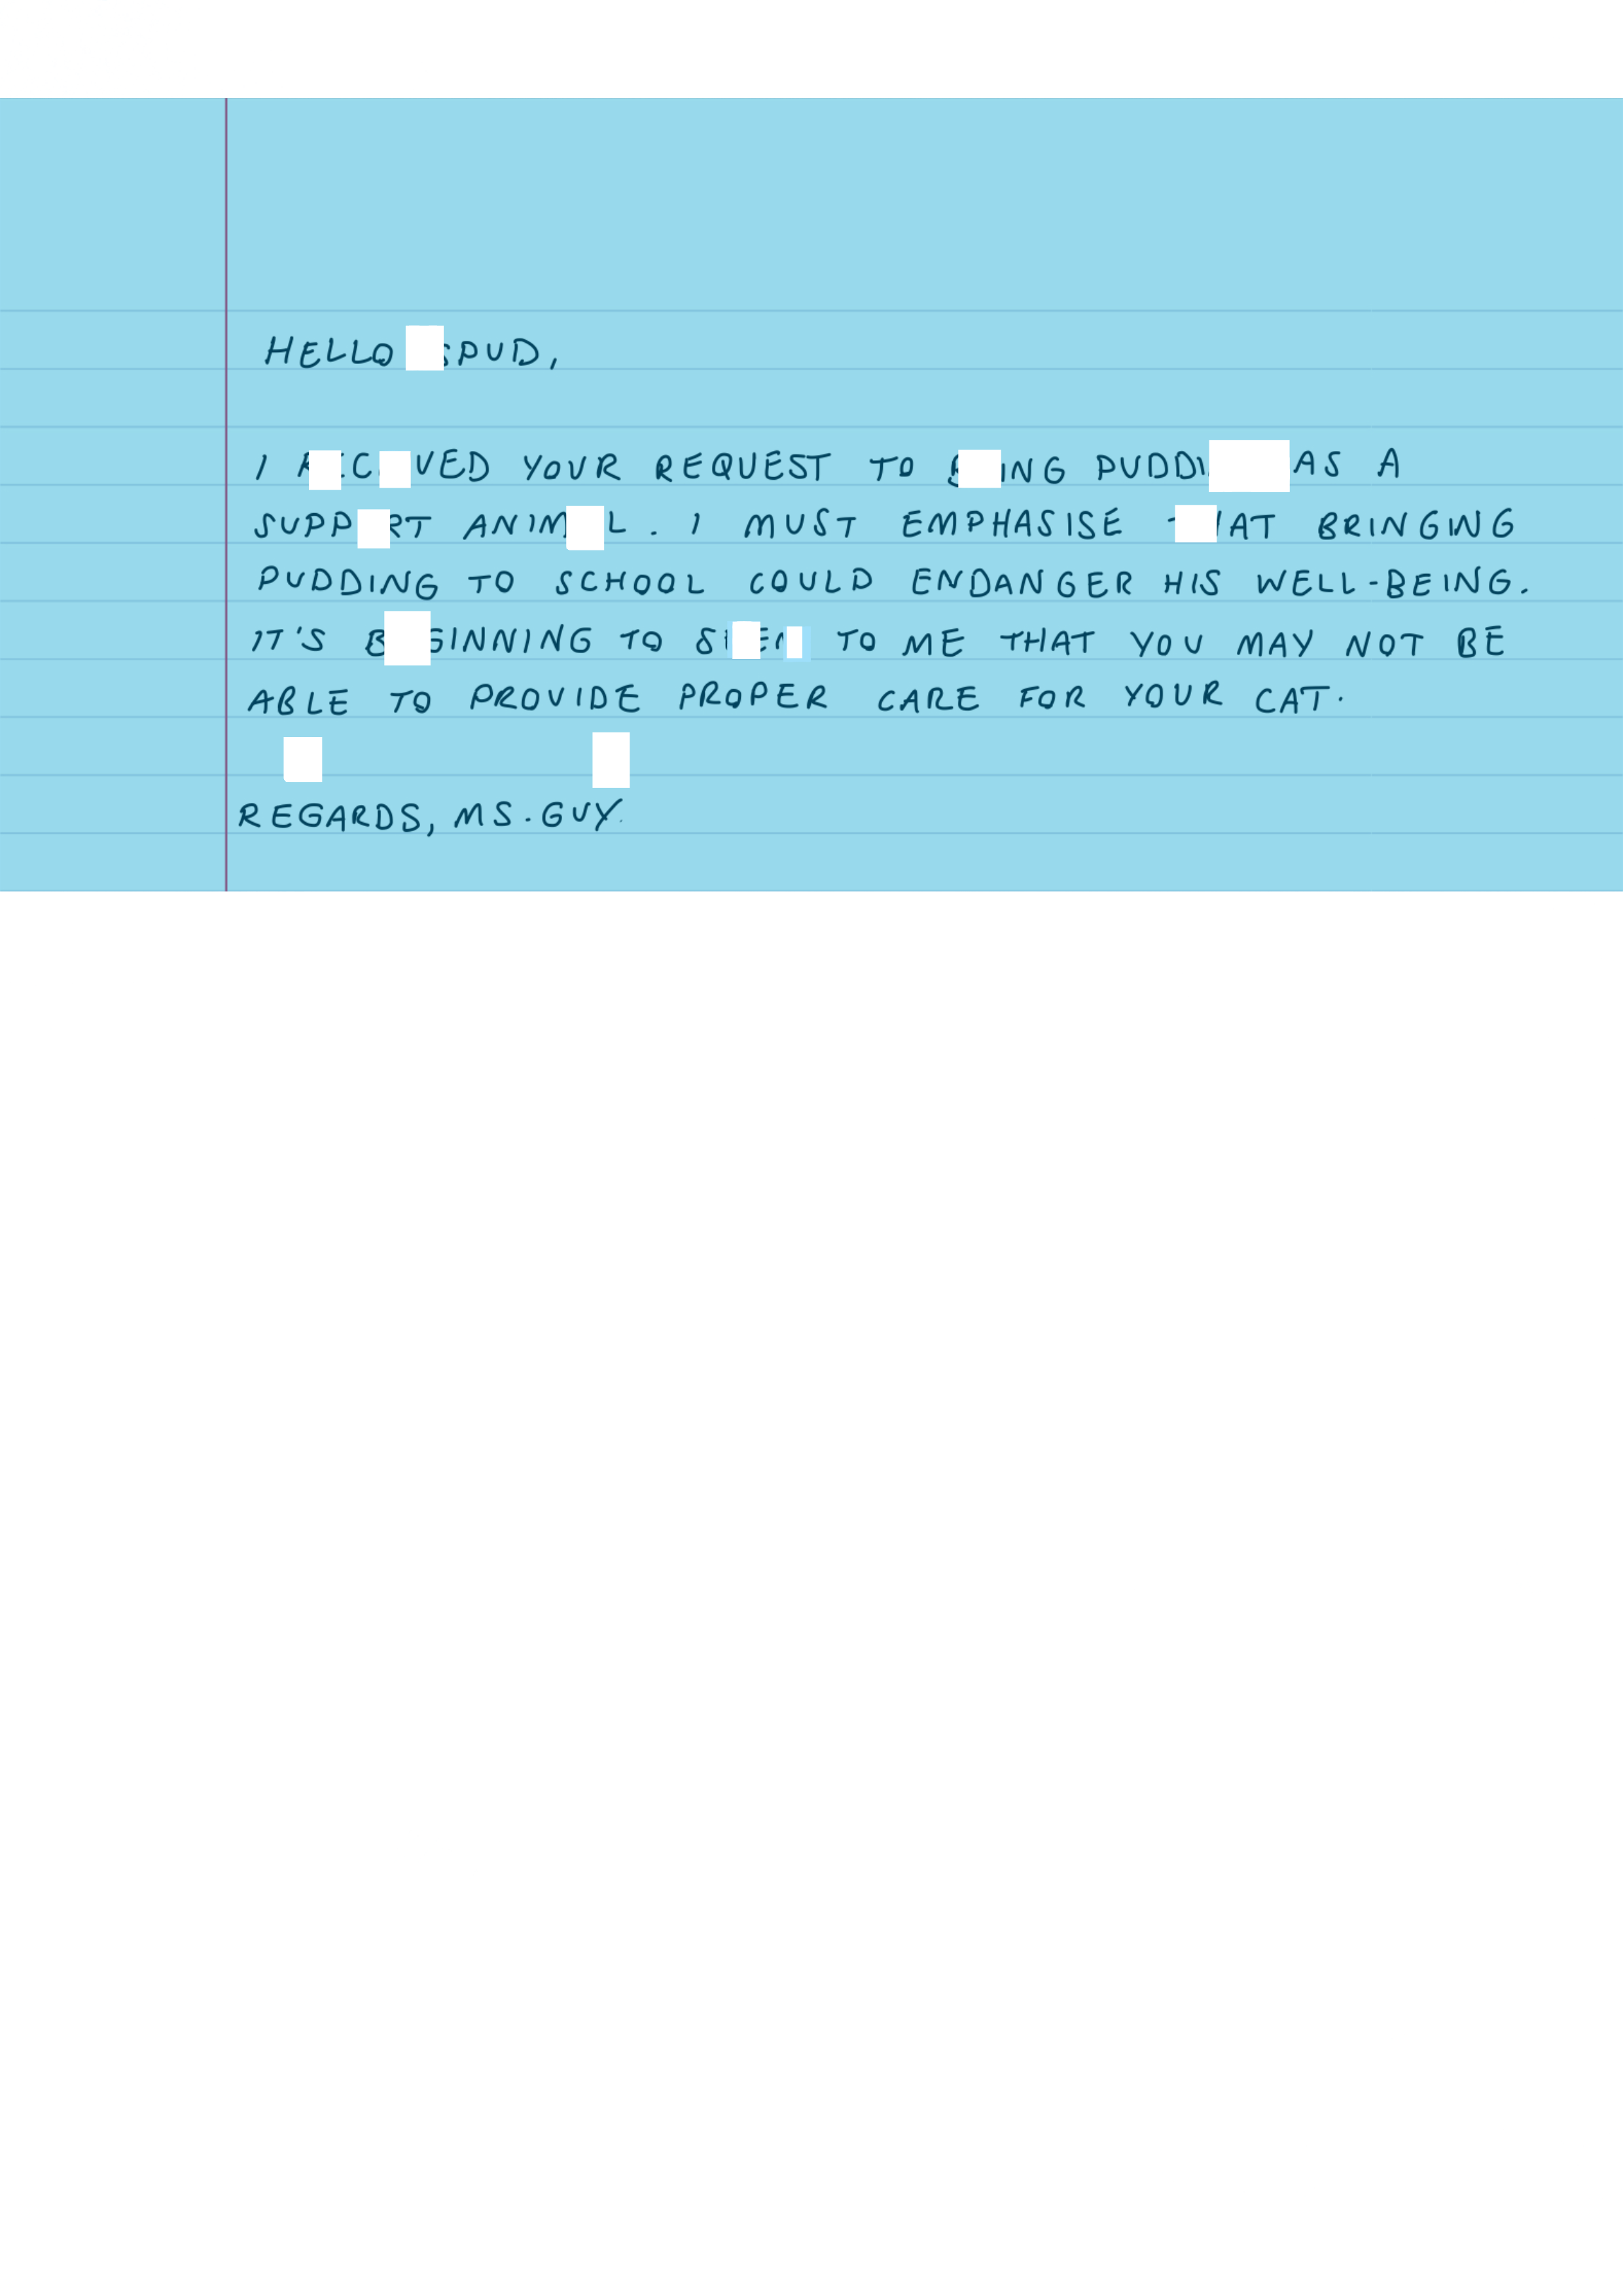 HELLO SPUD,
I RECEIVED YOUR REQUEST TO BRING PUDDING AS A
SUPPORT ANIMAL. I MUST EMPHASISE THAT BRINGING
PUDDING TO SCHOOL COULD ENDANGER HIS WELL-BEING.
IT'S BEGINNING TO SEEM TO ME THAT YOU MAY NOT BE
ABLE TO PROVIDE PROPER CARE FOR YOUR CAT.
REGARDS, MS. GUY.